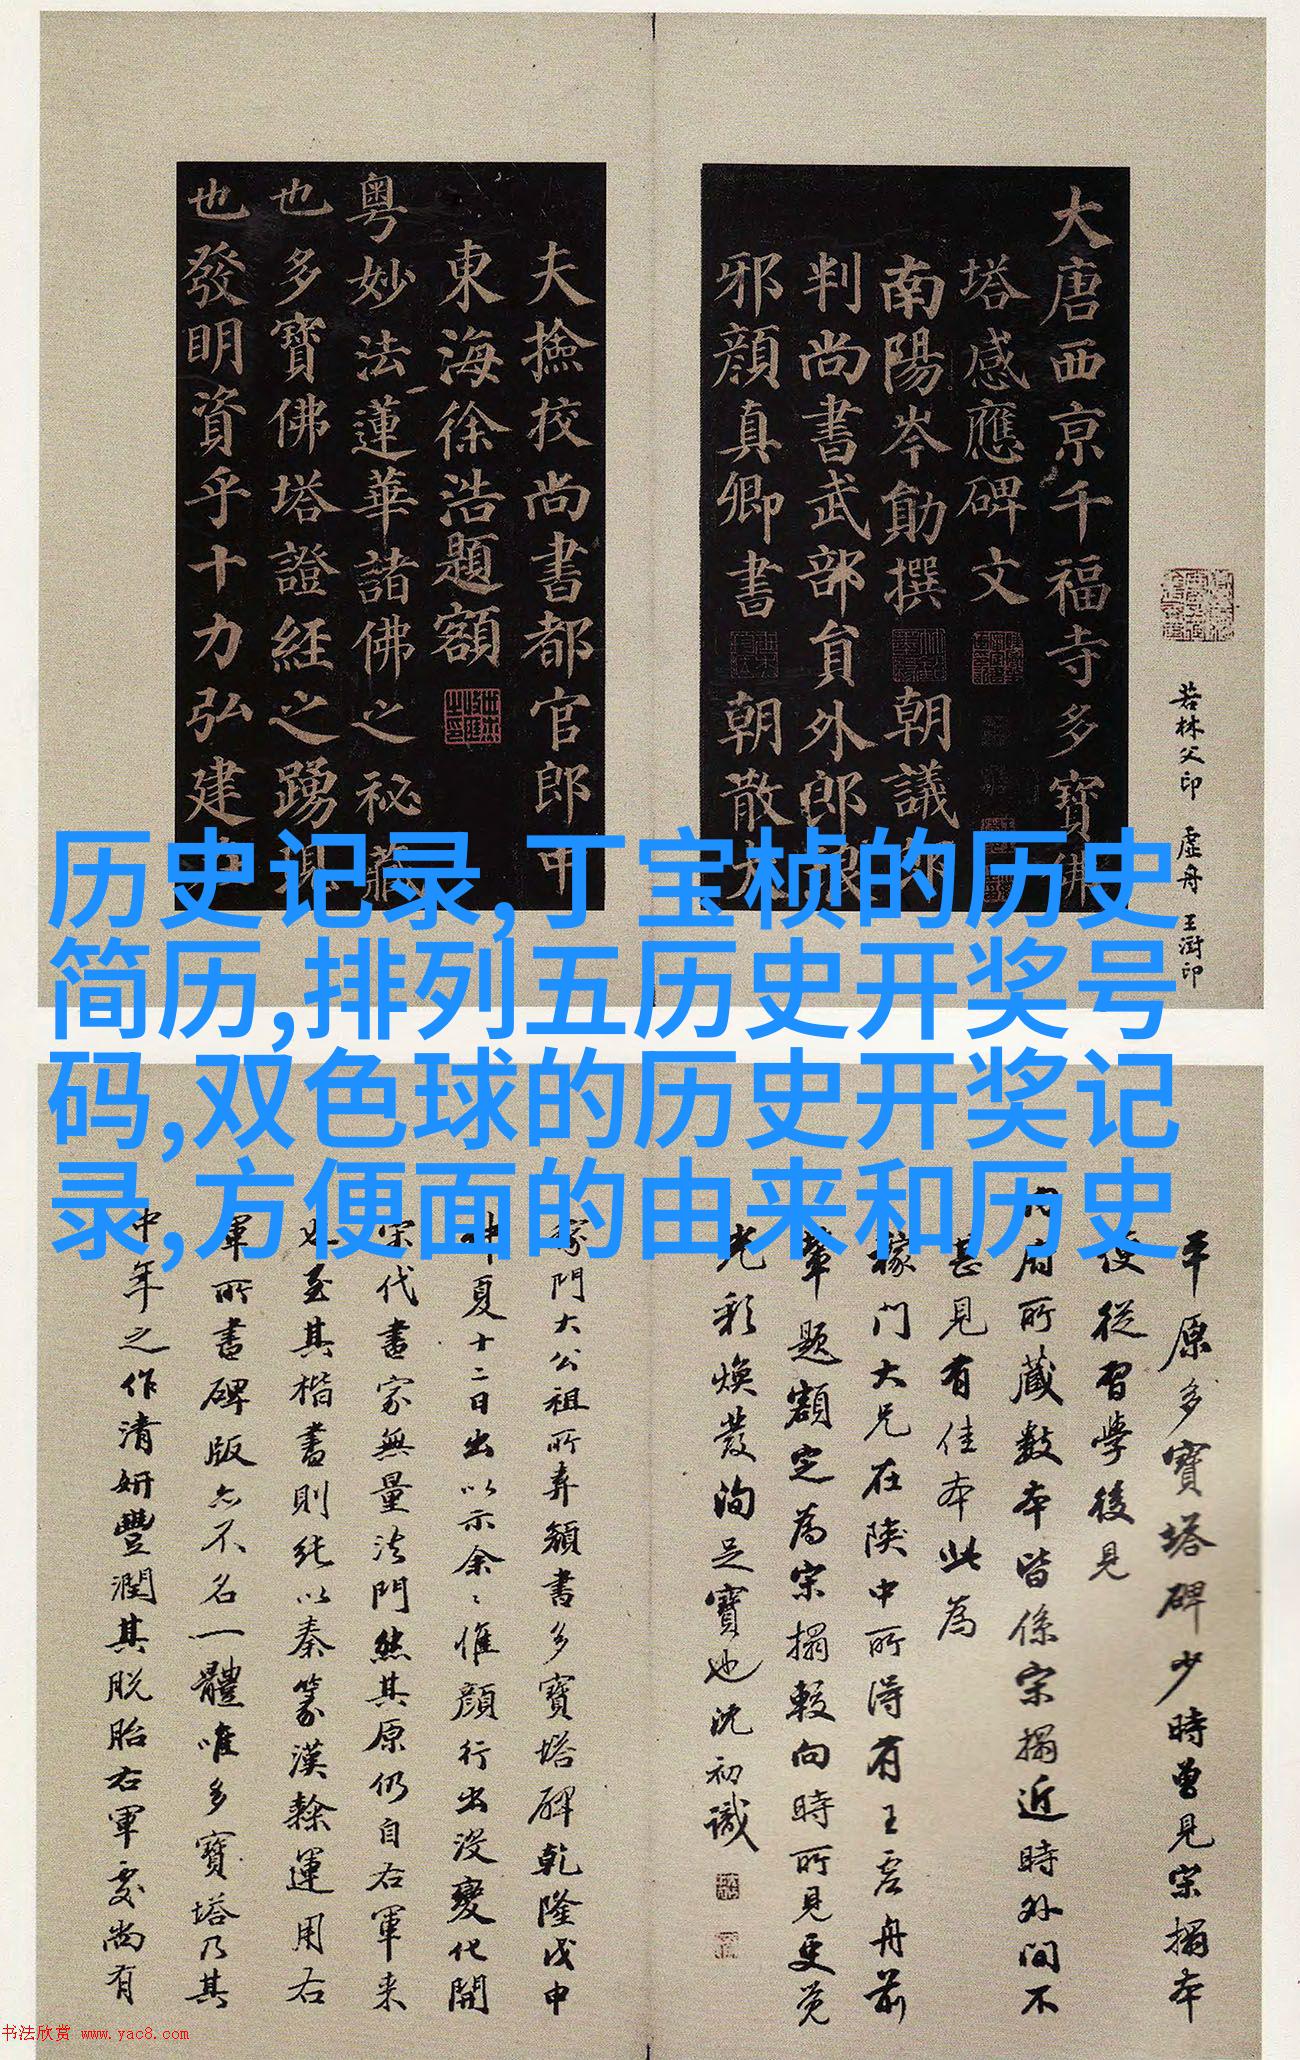 大唐西京千福寺多寶佛
塔感應碑文
南陽岑勛撰 朝議郎
判尚書武部貟外郎琅
邪顔真卿書 朝散大
夫撿挍尚書都官郎中
東海徐浩題額
粤妙法蓮華諸佛之秘藏
也多寶佛塔證經之踴現
也發明資乎十力弘建
若林父印 虛舟 王澍印
历史记录,丁宝桢的历史
简历,排列五历史开奖号
码,双色球的历史开奖记
录,方便面的由来和历史
平原多寶塔碑少時曽見宋搨本
便從習學後見
内府所藏數本皆係宋搨近時外間不
甚見有佳本此為
稼門大兄在陝中所得有王虛舟前
輩題額定為宋搨較向時所見更覺
光彩煥發洵足寶也沈初識
稼門大公祖所弆顏書多寶塔碑乾隆戊申
仲夏十二日出以示余〻惟顔行出没變化開
宋代書家無量法門然其原仍自右軍来
也至其楷書則純以秦篆漢隸運用右
軍所書碑版亦不名一體唯多寶塔乃其
中年之作清妍豐潤其脱胎右軍處尚有
书法欣赏 www.yac8.com